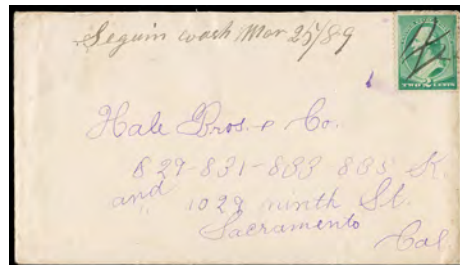 Seguin Wash Mar 25/89
TWO 2 CENTS
Hale Bros. & Co.
829-831-833 835 K
and 1029 ninth St.
Sacramento
Cal.